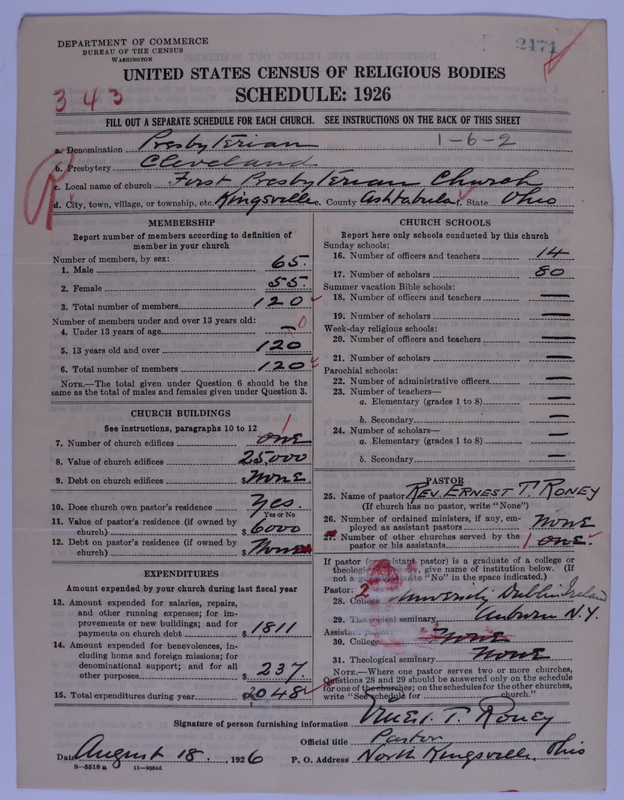 DEPARTMENT OF COMMERCE
BUREAU OF THE CENSUS
WASHINGTON
2471
UNITED STATES CENSUS OF RELIGIOUS BODIES
343
SCHEDULE: 1926
FILL OUT A SEPARATE SCHEDULE FOR EACH CHURCH. SEE INSTRUCTIONS ON THE BACK OF THIS SHEET
1-6-2
a. Denomination Presbyterian
b. Presbytery Cleveland
c. Local name of church First Presbyterian Church
d. City, town, village, or township, etc. Kingsville e. County Ashtabula f. State Ohio
MEMBERSHIP
Report number of members according to definition of
member in your church
Number of members, by sex:
1. Male 65.
2. Female 55.
3. Total number of members 120
Number of members under and over 13 years old:
4. Under 13 years of age — 0
5. 13 years old and over 120
6. Total number of members 120
NOTE.—The total given under Question 6 should be the
same as the total of males and females given under Question 3.
CHURCH BUILDINGS
See instructions, paragraphs 10 to 12
7. Number of church edifices one 1
8. Value of church edifices 25,000
9. Debt on church edifices None.
10. Does church own pastor's residence Yes.
Yes or No
11. Value of pastor's residence (if owned by
church) $ 6000
12. Debt on pastor's residence (if owned by
church) $ None
EXPENDITURES
Amount expended by your church during last fiscal year
13. Amount expended for salaries, repairs,
and other running expenses; for im-
provements or new buildings; and for
payments on church debt $ 1811
14. Amount expended for benevolences, in-
cluding home and foreign missions; for
denominational support; and for all
other purposes $ 237.
15. Total expenditures during year 2048
CHURCH SCHOOLS
Report here only schools conducted by this church
Sunday schools:
16. Number of officers and teachers 14
17. Number of scholars 80
Summer vacation Bible schools:
18. Number of officers and teachers —
19. Number of scholars —
Week-day religious schools:
20. Number of officers and teachers —
21. Number of scholars —
Parochial schools:
22. Number of administrative officers —
23. Number of teachers—
a. Elementary (grades 1 to 8) —
b. Secondary —
24. Number of scholars—
a. Elementary (grades 1 to 8) —
b. Secondary —
PASTOR
25. Name of pastor REV. ERNEST T. RONEY
(If church has no pastor, write "None")
26. Number of ordained ministers, if any, em-
ployed as assistant pastors None
27. Number of other churches served by the
pastor or his assistants 1 one.
If pastor (or assistant pastor) is a graduate of a college or
theological seminary, give name of institution below. (If
not a graduate, write "No" in the space indicated.)
Pastor: 2
28. College University Dublin Ireland
29. Theological seminary Auburn N.Y.
Assistant pastor:
30. College None
31. Theological seminary None
NOTE.—Where one pastor serves two or more churches,
Questions 28 and 29 should be answered only on the schedule
for one of the churches; on the schedules for the other churches,
write "See schedule for church."
Signature of person furnishing information Ernest T. Roney
Official title Pastor
Date August 18., 1926 P. O. Address North Kingsville, Ohio
8-5518a